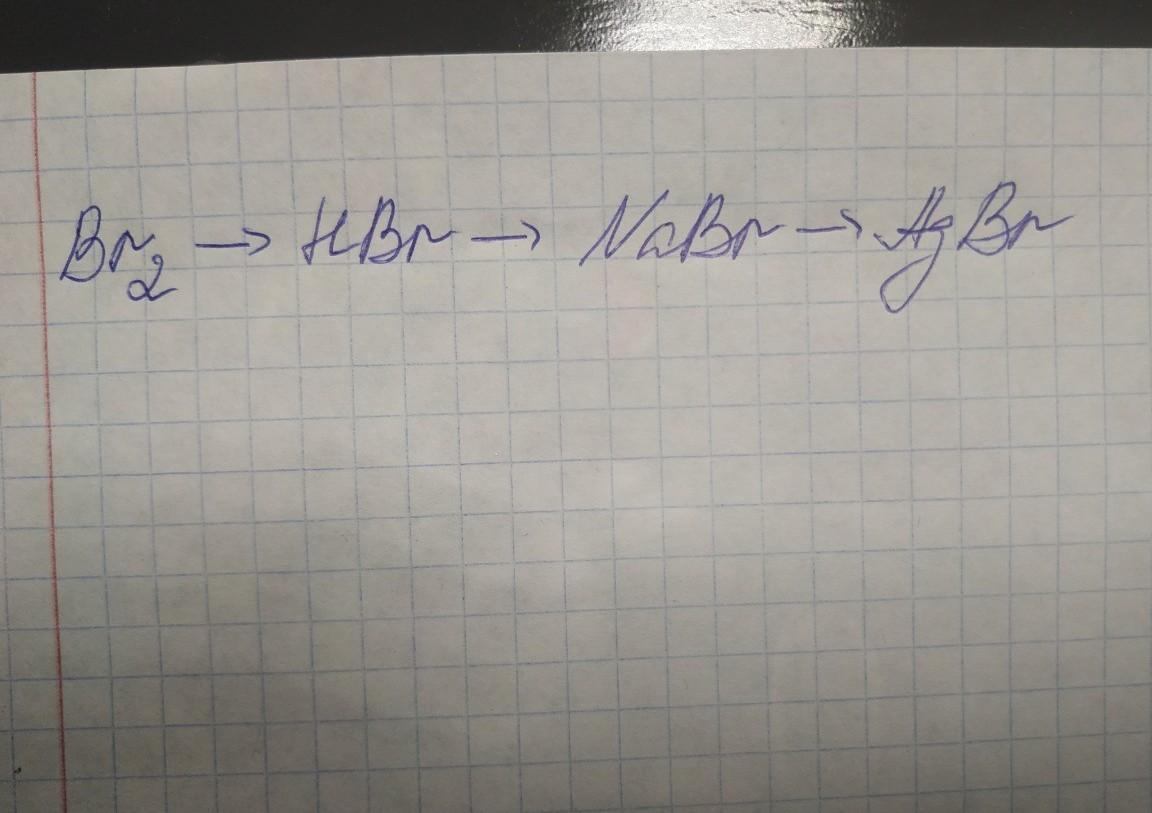 Br₂ → HBr → NaBr → AgBr